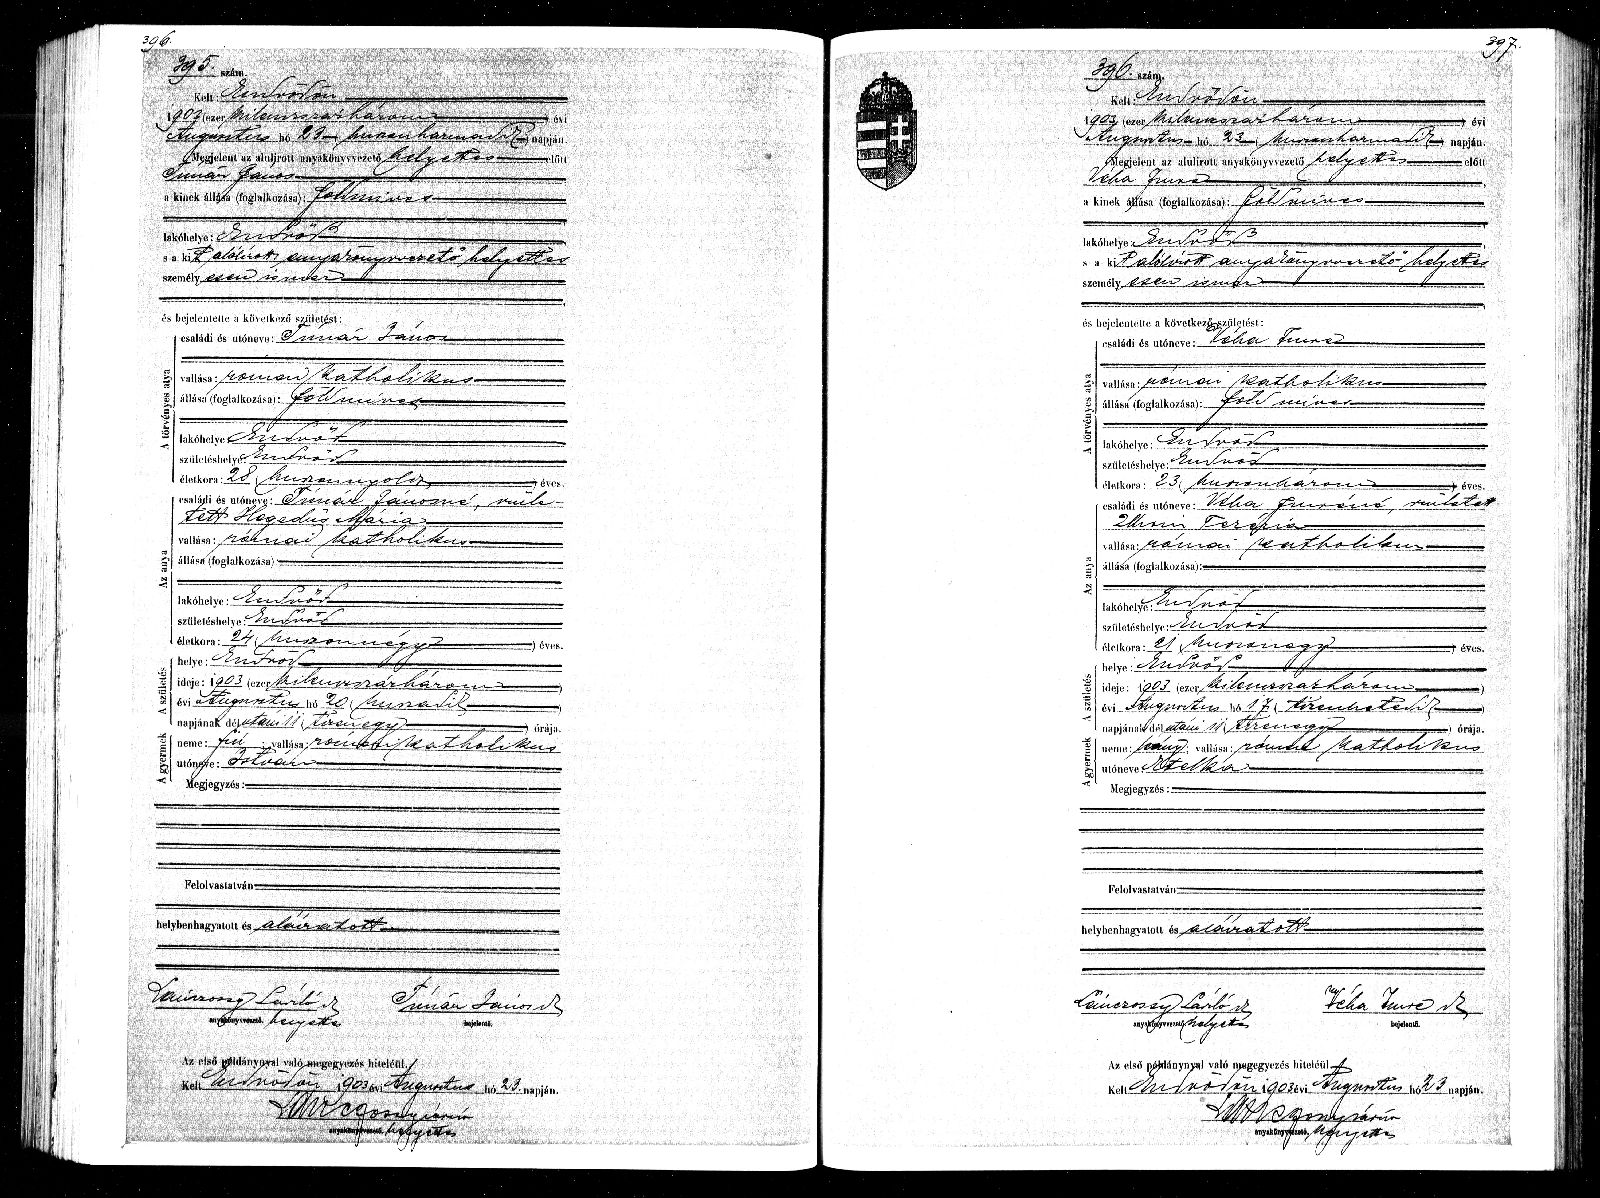 396.
395. szám.
Kelt: Endrődön
1903 (ezer kilencszázhárom) évi
Augusztus hó 23 (huszonharmadik) napján.
Megjelent az alulirott anyakönyvvezető helyettes előtt
Timár János
a kinek állása (foglalkozása): földmíves
lakóhelye: Endrőd
s a kit alólírott anyakönyvvezető helyettes
személyesen ismer
és bejelentette a következő születést:
A törvényes atya
családi és utóneve: Timár János
vallása: római katholikus
állása (foglalkozása): földmíves
lakóhelye: Endrőd
születéshelye: Endrőd
életkora: 28 (huszonnyolc) éves.
Az anya
családi és utóneve: Timár Jánosné, szüle-
tett Hegedüs Mária
vallása: római katholikus
állása (foglalkozása)
lakóhelye: Endrőd
születéshelye: Endrőd
életkora: 24 (huszonnégy) éves.
A születés
helye: Endrőd
ideje: 1903 (ezer kilencszázhárom)
évi Augusztus hó 20 (huszadik)
napjának délutáni 11 (tizenegy) órája.
A gyermek
neme: fiú vallása: római katholikus
utóneve: István
Megjegyzés:
Felolvastatván
helybenhagyatott és aláiratott
Lánczossy László sk Timár János sk
anyakönyvvezető. helyettes bejelentő.
Az első példánynyal való megegyezés hiteléül.
Kelt Endrődön 1903 évi Augusztus hó 23. napján.
anyakönyvvezető. helyettes
397.
396. szám.
Kelt: Endrődön
1903 (ezer kilencszázhárom) évi
Augusztus hó 23 (huszonharmadik) napján.
Megjelent az alulirott anyakönyvvezető helyettes előtt
Véha Imre
a kinek állása (foglalkozása): földmíves
lakóhelye: Endrőd
s a kit alólírott anyakönyvvezető helyettes
személyesen ismer
és bejelentette a következő születést:
A törvényes atya
családi és utóneve: Véha Imre
vallása: római katholikus
állása (foglalkozása): földmíves
lakóhelye: Endrőd
születéshelye: Endrőd
életkora: 23 (huszonhárom) éves.
Az anya
családi és utóneve: Véha Imréné, született
Terézia
vallása: római katholikus
állása (foglalkozása):
lakóhelye: Endrőd
születéshelye: Endrőd
életkora: 21 (huszonegy) éves.
A születés
helye: Endrőd
ideje: 1903 (ezer kilencszázhárom)
évi Augusztus hó 17 (tizenhetedik)
napjának délutáni 11 (tizenegy) órája.
A gyermek
neme: leány vallása: római katholikus
utóneve Etelka
Megjegyzés:
Felolvastatván
helybenhagyatott és aláiratott
Lánczossy László sk Véha Imre sk
anyakönyvvezető, helyettes bejelentő.
Az első példánynyal való megegyezés hiteléül.
Kelt Endrődön 1903 évi Augusztus hó 23 napján.
anyakönyvvezető, helyettes